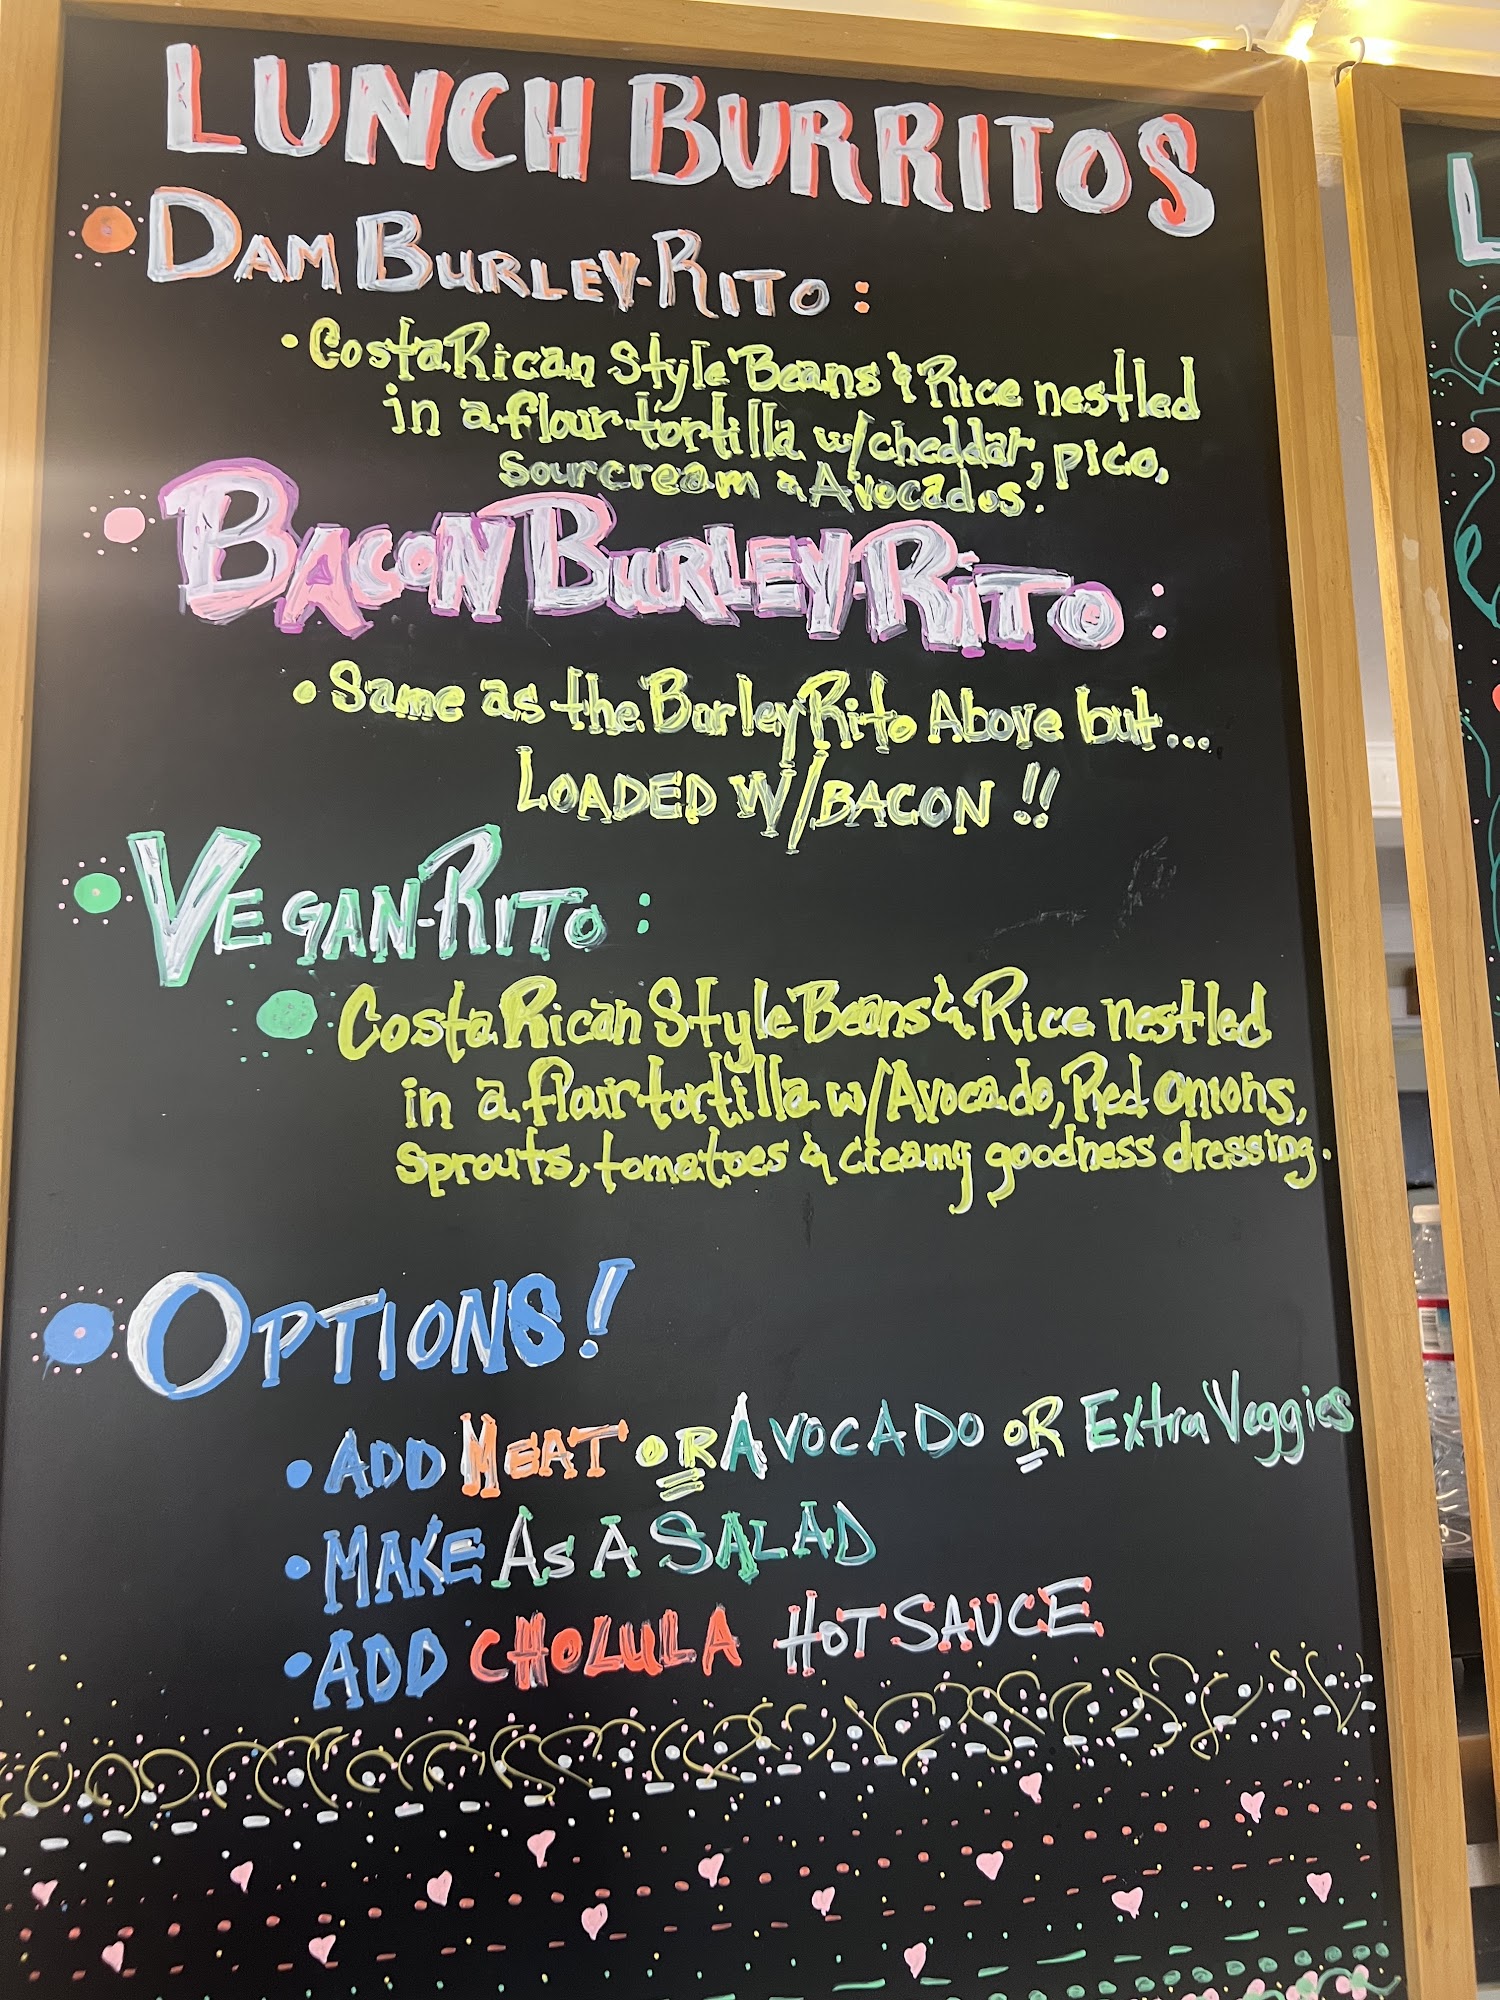 LUNCH BURRITOS
DAM BURLEY-RITO:
• Costa Rican Style Beans & Rice nestled
in a flour tortilla w/cheddar, pico,
sourcream & Avocados.
BACON BURLEY-RITO:
• Same as the Burley Rito Above but...
LOADED W/BACON!!
VEGAN-RITO:
Costa Rican Style Beans & Rice nestled
in a flour tortilla w/Avocado, Red onions,
sprouts, tomatoes & creamy goodness dressing.
OPTIONS!
• ADD MEAT OR AVOCADO OR Extra Veggies
• MAKE AS A SALAD
• ADD CHOLULA HOT SAUCE
L